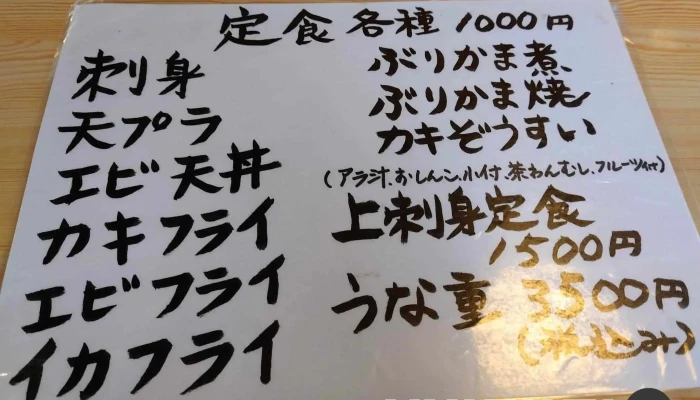 定食各種 1000円
刺身
天プラ
エビ天丼
カキフライ
エビフライ
イカフライ
ぶりかま煮
ぶりかま焼
カキぞうすい
(アラ汁、おしんこ、小付、茶わんむし、フルーツ付)
上刺身定食
1500円
うな重 3500円
(税込み)